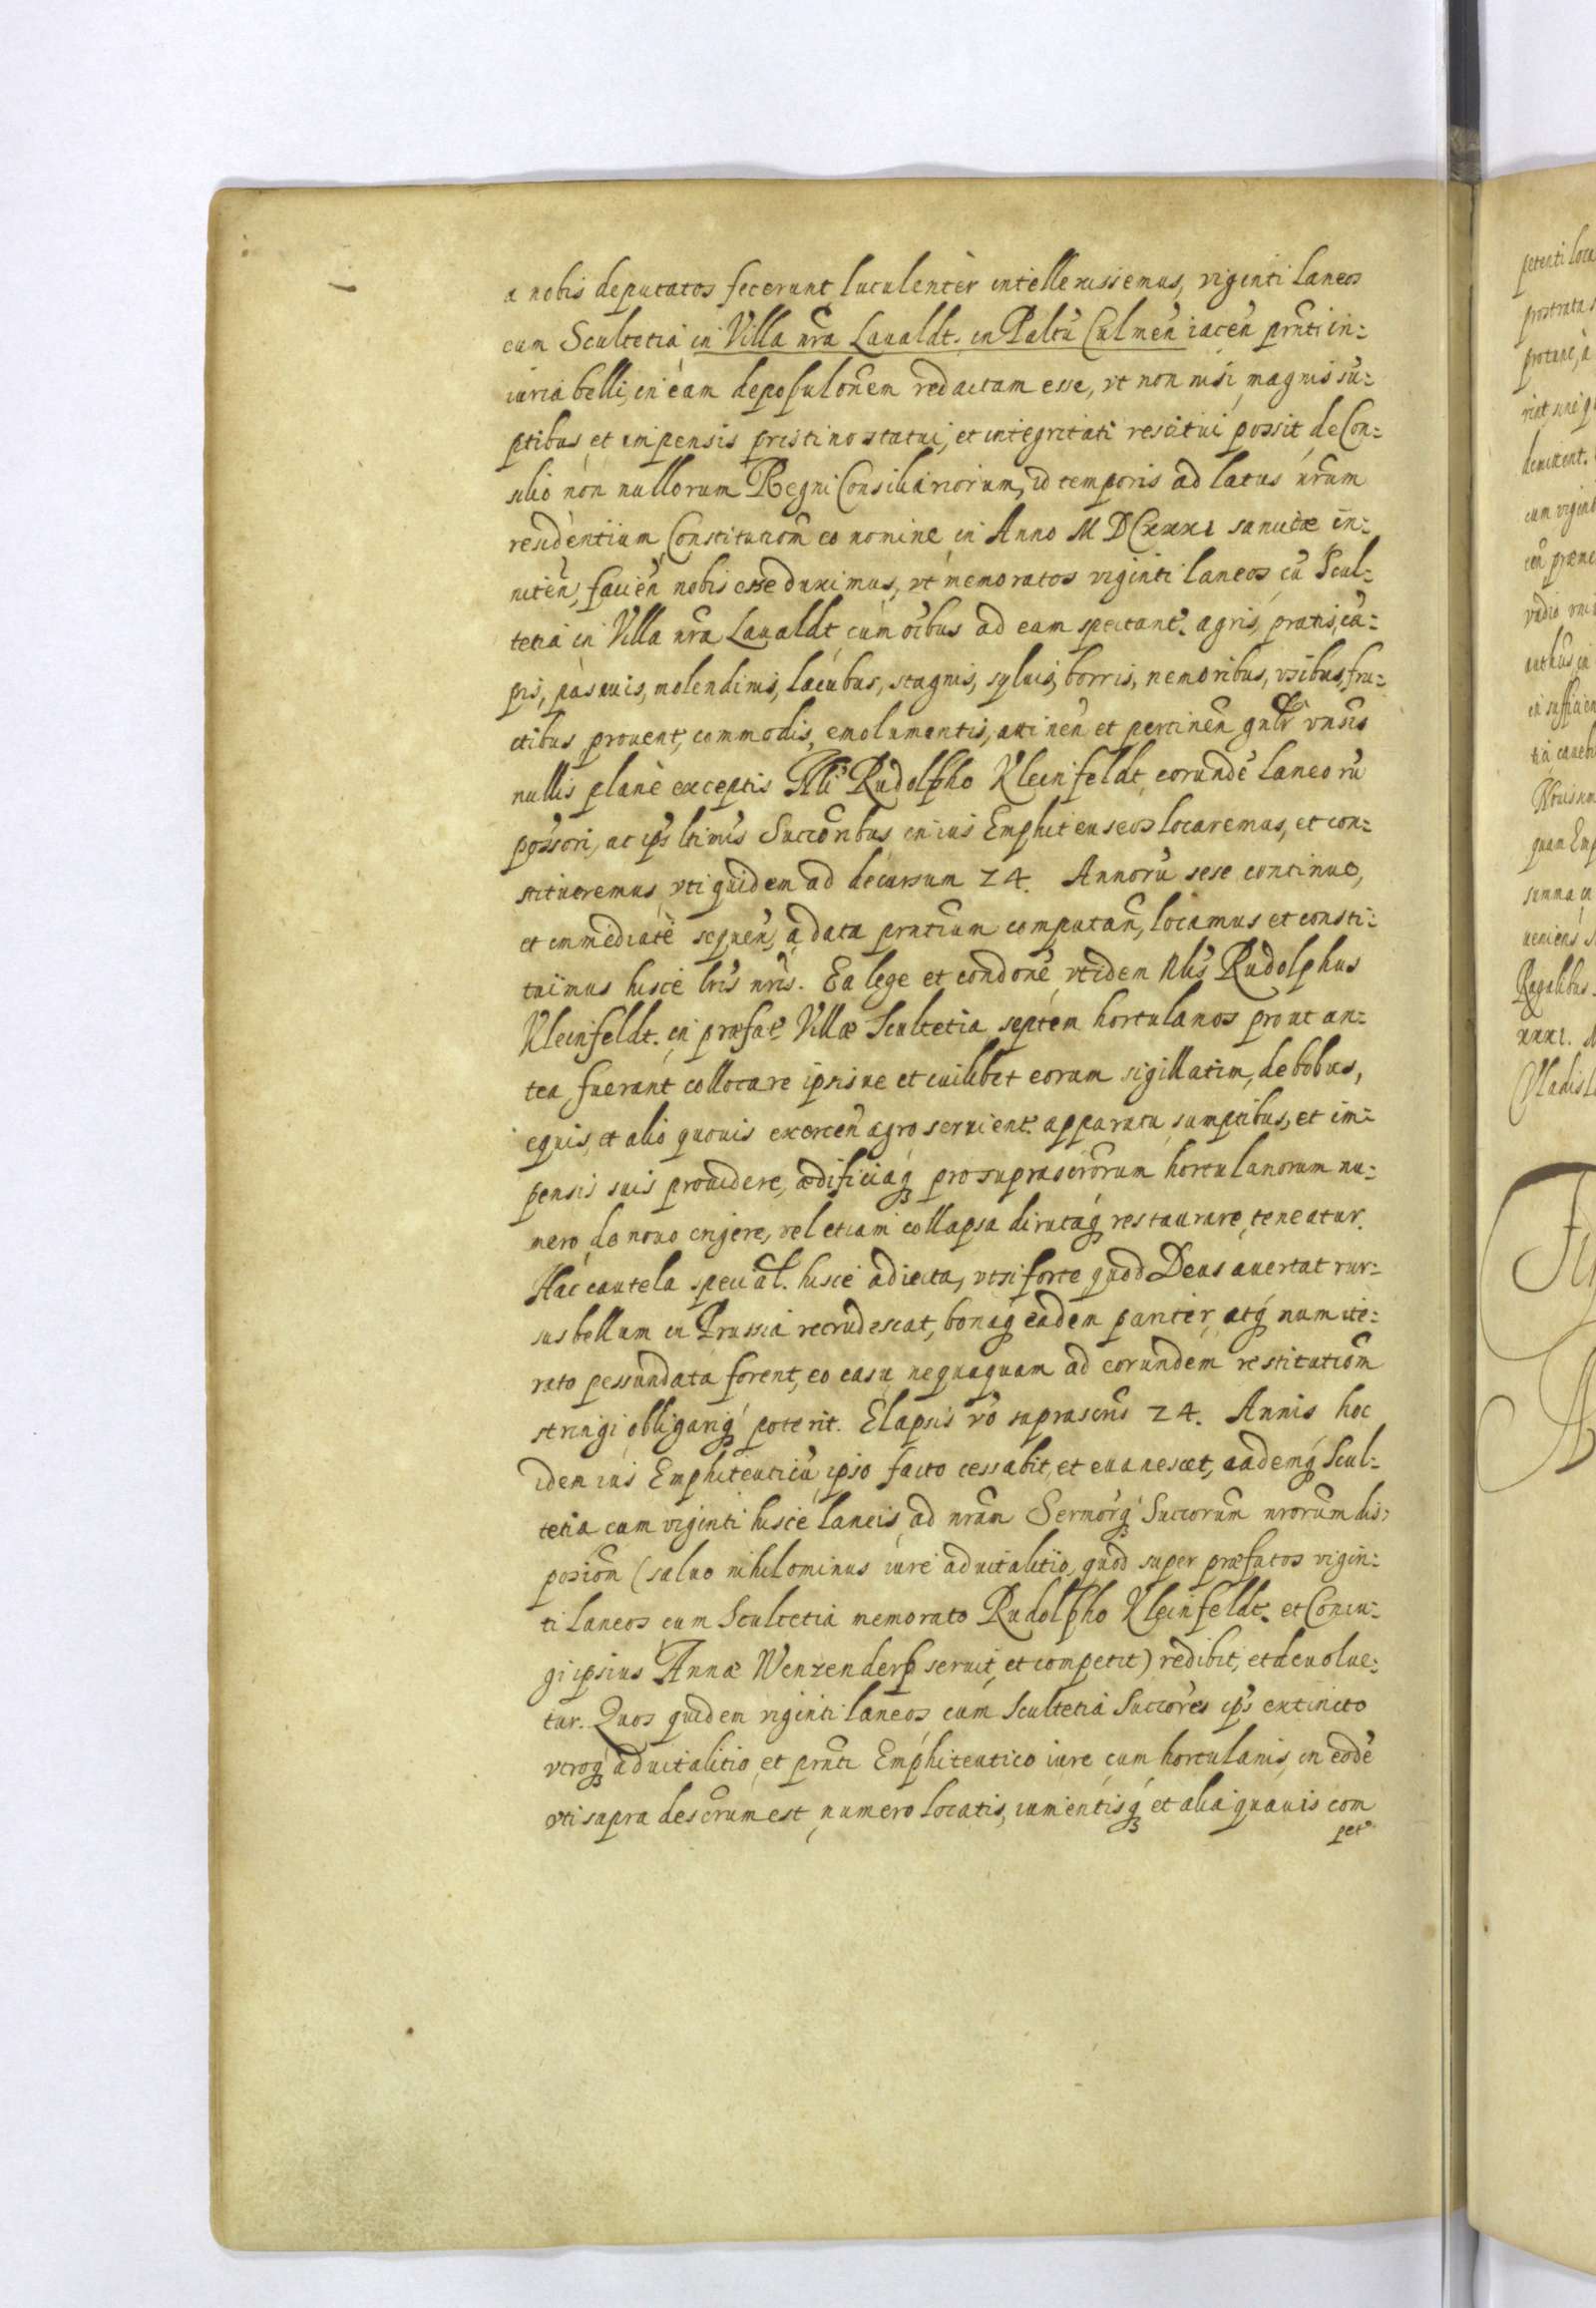 a nobis deputatos fecerunt luculenter intellexissemus, viginti laneos
cum Scultetia in Villa nra Laualdt. in Paltu Culmen iacen prnti in:
iuria belli, in eam deposulonem redactam esse, vt non nisi magnis su:
ptibus et impensis pristino statui, et integritati restitui possit, de Con:
silio non nullorum Regni Consiliariorum, id temporis ad latus nrum
residentium Constitutiom eo nomine in Anno MDCXXXI sancitæ in:
niten, facien nobis esse duximus, vt memoratos viginti laneos cu Scul:
tetia in Villa nra Laualdt cum oibus ad eam spectant. agris, pratis, ca:
pis, pascuis, molendinis, lacubus, stagnis, syluis, borris, nemoribus, vsibus, fru:
ctibus prouent, commodis, emolumentis, attinen et pertinen gnlr vnsis
nullis plane exceptis Nli Rudolpho Kleinfeldt, eorunde laneoru
possori, ac ips ltimis Succoribus in ius Emphiteuseos locaremus, et con:
stitueremus, vti quidem ad decursum 24. Annoru sese continuo,
et immediate sequen, a data prntium computan, locamus et consti:
tuimus hisce lris nris. Ea lege et condone vt idem Nlis Rudolphus
Kleinfeldt. in præfat. Villæ Scultetia septem hortulanos prout an:
tea fuerant collocare ipsisue et cuilibet eorum sigillatim, de bobus,
equis, et alio quouis exercen agro seruient. apparatu, sumptibus, et im:
pensis suis prouidere, ædificiaq pro suprascrorum hortulanorum nu:
mero de nouo erigere, vel etiam collapsa dirutaq restaurare teneatur.
Hac cautela special. hisce adiecta, vt si forte quod Deus auertat rur:
sus bellum in Prussia recrudescat, bonaq eadem pariter, atq num ite:
rato pessundata forent, eo casu nequaquam ad eorundem restitutiom
stringi obligariq poterit. Elapsis vo suprascris 24. Annis hoc
idem ius Emphiteuticu ipso facto cessabit, et euanescet, eademq Scul:
tetia cum viginti hisce laneis ad nram Sermorq Succorum nrorum dis:
posiom (saluo nihilominus iure aduitalitio, quod super præfatos vigin:
ti laneos cum Scultetia memorato Rudolpho Kleinfeldt. et Coniu:
gi ipsius Annæ Wenzenderp seruit, et competit) redibit, et deuolue:
tur. Quos quidem viginti laneos cum Scultetia Succores ips extincto
vtroq aduitalitio, et prnti Emphiteutico iure cum hortulanis in eode
vti supra descrum est, numero locatis, iumentisq et alia quauis com
pet